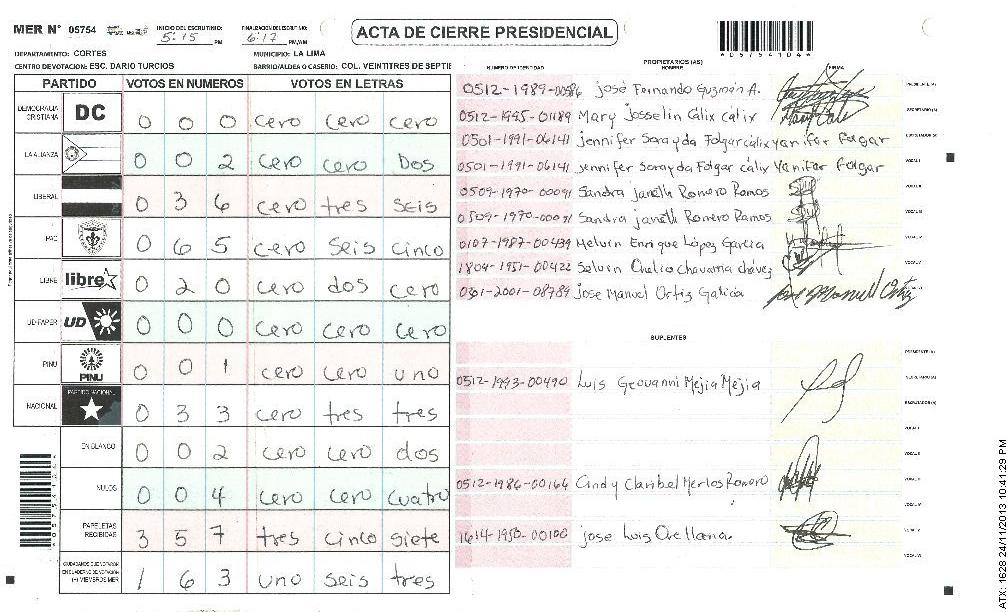 MER N° 05754
INICIO DEL ESCRUTINIO: 5:15 PM
FINALIZACION DEL ESCRUTINIO: 6:17 PM/AM
ACTA DE CIERRE PRESIDENCIAL
*05754104*
DEPARTAMENTO: CORTES
MUNICIPIO: LA LIMA
CENTRO DE VOTACION: ESC. DARIO TURCIOS
BARRIO/ALDEA O CASERIO: COL. VEINTITRES DE SEPTIE
PARTIDO VOTOS EN NUMEROS VOTOS EN LETRAS
DEMOCRACIA CRISTIANA DC 0 0 0 cero cero cero
LA ALIANZA 0 0 2 cero cero Dos
LIBERAL 0 3 6 cero tres seis
PAC 0 6 5 cero seis cinco
LIBRE libre 0 2 0 cero dos cero
UD-FAPER UD 0 0 0 cero cero cero
PINU PINU 0 0 1 cero cero uno
NACIONAL PARTIDO NACIONAL 0 3 3 cero tres tres
EN BLANCO 0 0 2 cero cero dos
NULOS 0 0 4 cero cero cuatro
PAPELETAS RECIBIDAS 3 5 7 tres cinco siete
CIUDADANOS QUE VOTARON EN CUADERNO DE VOTACION (+) MIEMBROS MER 1 6 3 uno seis tres
NUMERO DE IDENTIDAD PROPIETARIOS (AS) NOMBRE FIRMA
0512-1989-00586 josé Fernando Guzmán A. PRESIDENTE (A)
0512-1995-01189 Mary Josselin Cálix cálix SECRETARIO (A)
0501-1991-06141 jennifer Sorayda Folgar cálix yanifer folgar ESCRUTADOR (A)
0501-1991-06141 jennifer Sorayda Folgar cálix Yanifer folgar VOCAL I
0509-1970-00091 Sandra janeth Romero Ramos VOCAL II
0509-1970-00091 Sandra janeth Romero Ramos VOCAL III
0107-1987-00439 Melvin Enrique López García VOCAL IV
1804-1951-00422 Selvin Chavarria chávez VOCAL V
0301-2001-08789 jose Manuel Ortiz Galicia jose Manuel Ortiz VOCAL VI
SUPLENTES
PRESIDENTE (A)
0512-1993-00490 Luis Geovanni Mejia Mejia SECRETARIO (A)
ESCRUTADOR (A)
VOCAL I
VOCAL II
0512-1986-00164 Cindy Claribel Merlos Romero VOCAL III
VOCAL IV
1614-1950-00100 jose Luis Orellana. VOCAL V
VOCAL VI
ATX: 1628 24/11/2013 10:41:29 PM